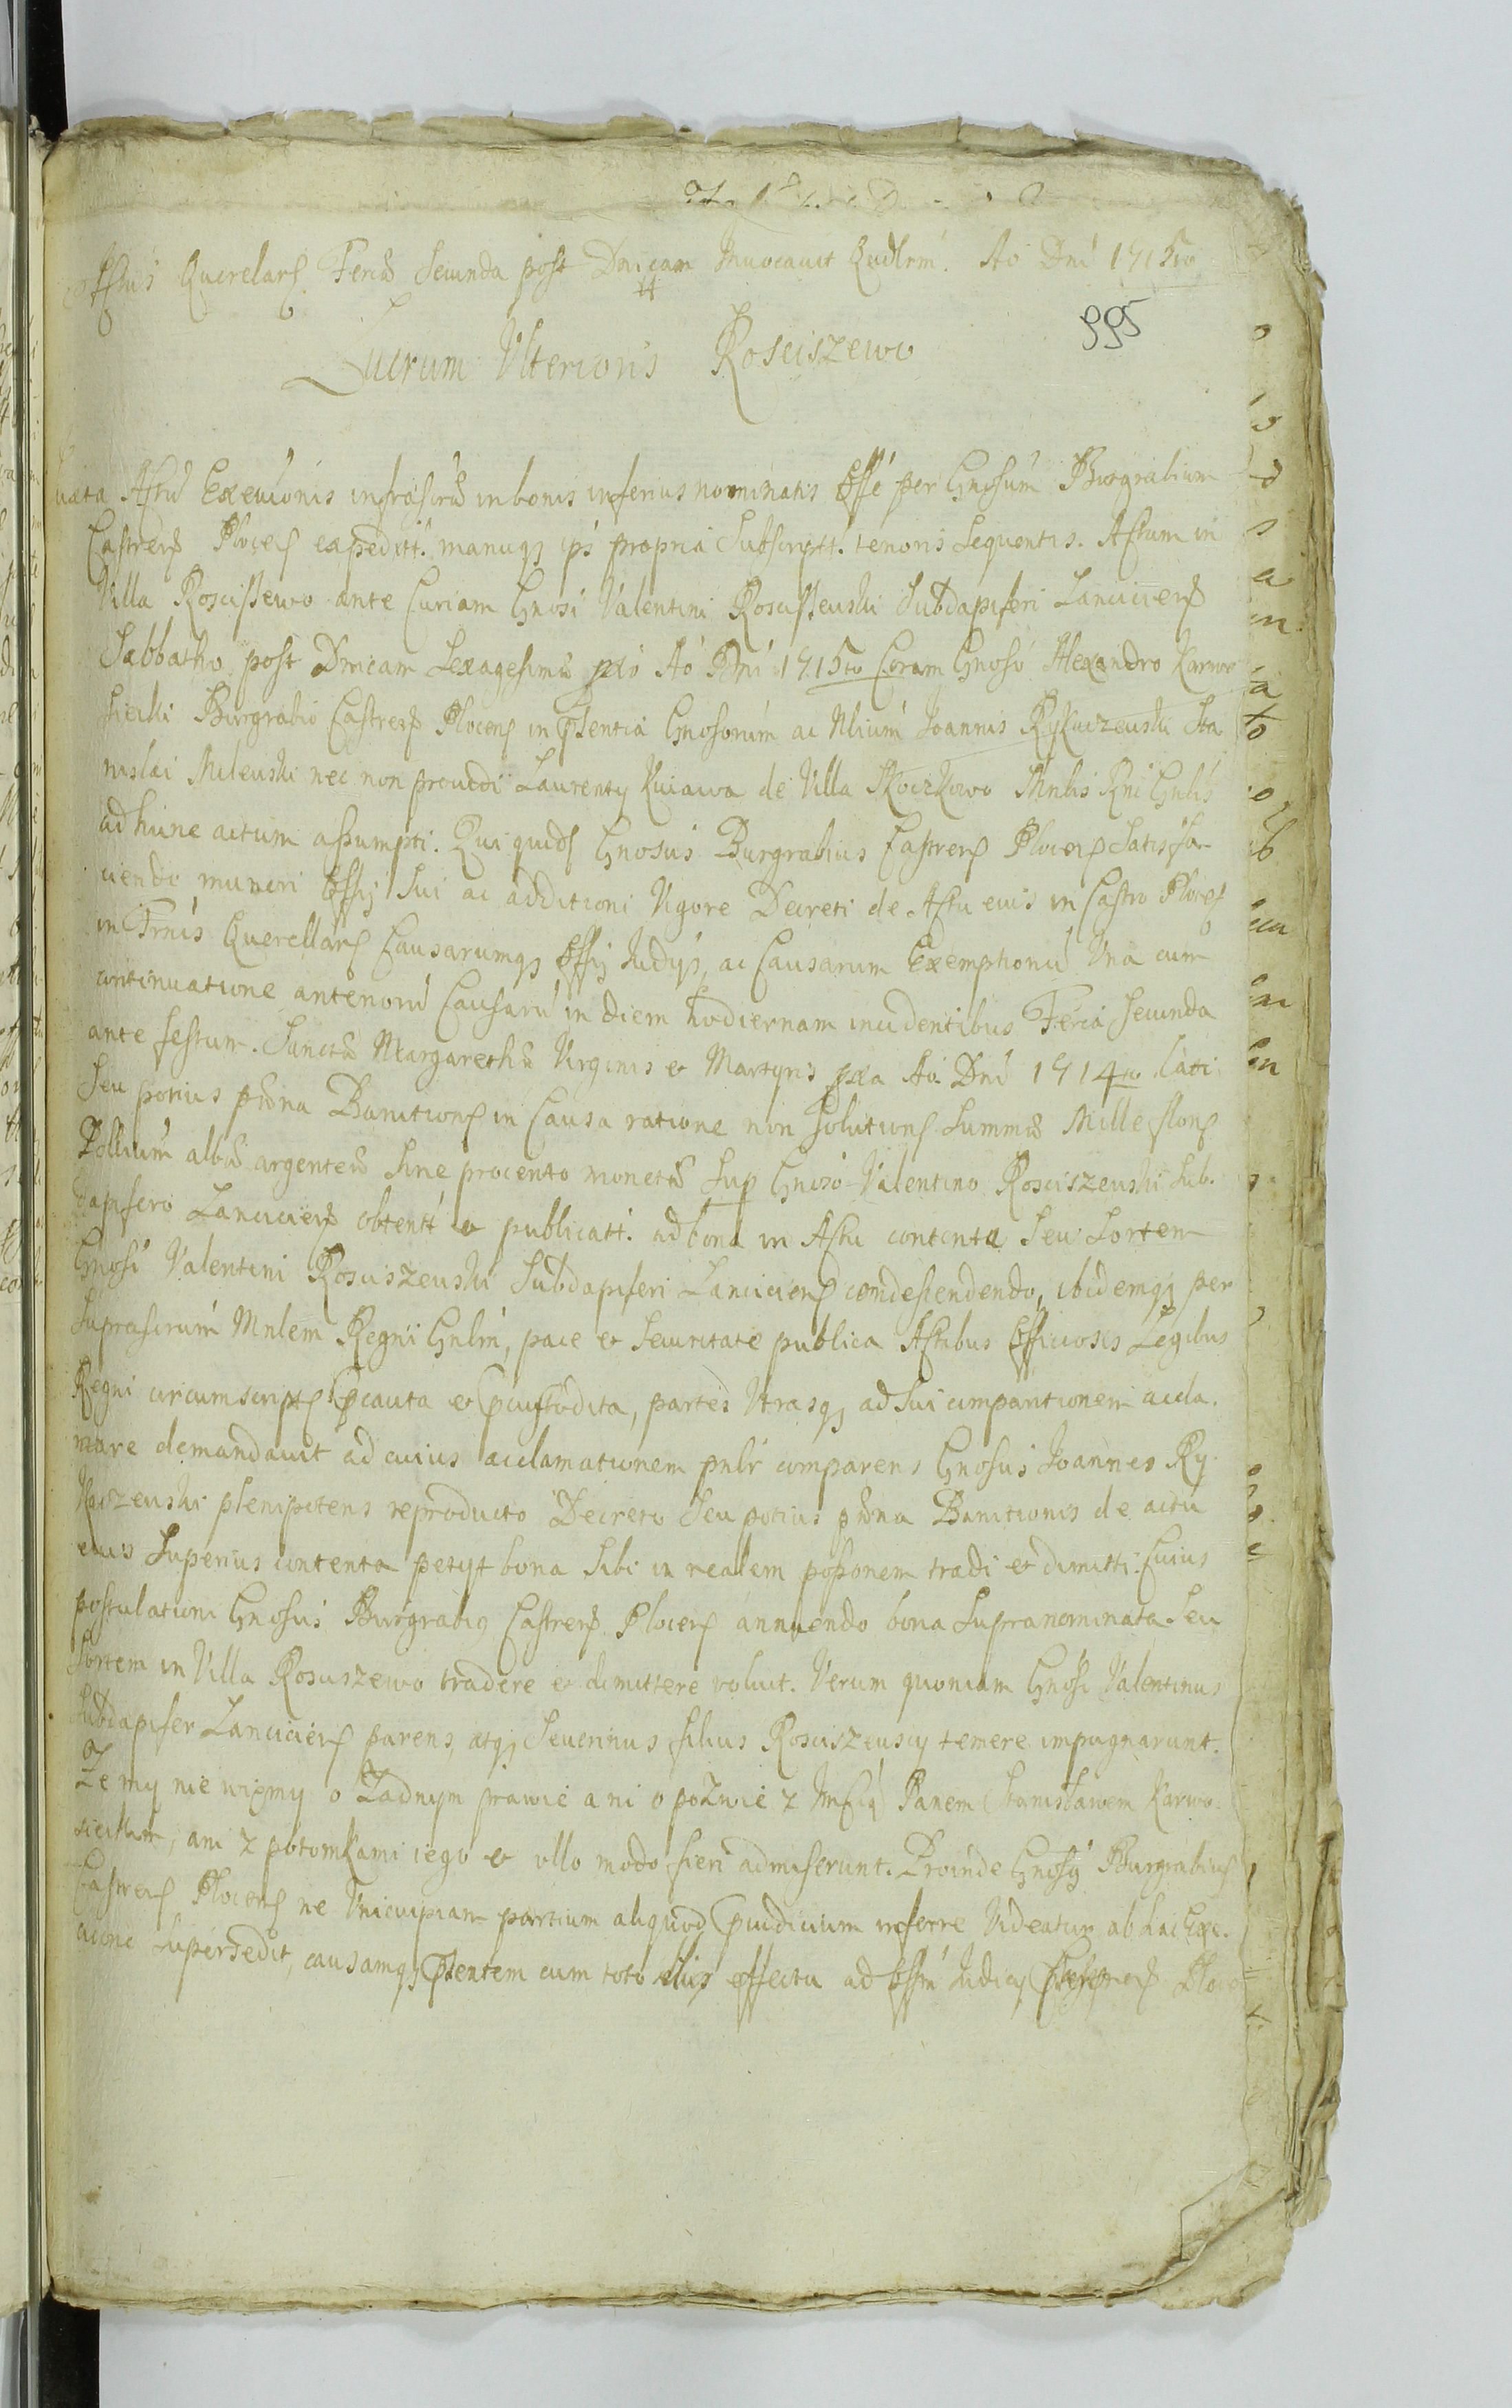 Actus Querelar Feria Secunda post Dnicam Inuocauit Qudlrm. Ao Dni 1715to
995
Lucrum Ulterioris Rosciszewo
Actu Exeuionis infrascru in bonis inferius nominatis Offe per Gnosum Burgrabium
Castrens Plocens expeditt. manuq ips propria Subscriptt. tenoris Sequentis. Actum in
Villa Roscissewo ante Curiam Gnosi Valentini Roscissewski Subdapiferi Lanciciens
Sabbatho post Dnicam Sexagesima pxo Ao Dni 1715to Coram Gnoso Alexandro Karwo
siecki Burgrabio Castrens Plocens in pntia Gnosorum ac Nlium Joannis Rykaczewski Sta
nislai Milewski nec non prouidi Laurenty Kuiawa de Villa Mnlis Rni Gnlis
ad hunc actum assumpti. Qui quid Gnosus Burgrabius Castrens Plocens Satisfa
ciendo muneri Offy Sui ac additioni Vigore Decreti de Actu euis in Castro Plocens
in Trnis Querellars Causarumq Offy Judys, ac Causarum Exemptionu Una cum
continuatione anteriorù Causarù in diem hodiernam incidentibus Feria Secunda
ante festum Sanctæ Margarethæ Virginis et Martyris pxa Ao Dni 1714to Lati
Seu potius pæna Banitions in Causa ratione non Solutions Summæ Mille flons
Pollium albæ argenteæ Sine procento monetæ Sup Gnoso Valentino Rosciszewski Sub
dapifero Lanciciens obtentt et publicatt. ad bona in Actu contenta Seu Sortem
Gnosi Valentini Rosciszewski Subdapiferi Lanciciens condescendendo, ibidemq per
Suprascrum Mnlem Regni Gnlm, pace et Securitate publica Actibus Officiosis Legibus
Regni circumscripts pcauta et pcustodita, partes Utrasq ad Sui comparitionem accla.
mare demandauit ad cuius acclamationem pnlr comparens Gnosus Joannes Ry
kaczewski plenipotens reproducto Decreto Seu potius pæna Banitionis de actu
euis Superius contenta petyt bona Sibi in realem possonem tradi et dimitti. Cuius
postulationi Gnosus Burgrabius Castrens Plocens annuendo bona Supranominata Seu
Sortem in Villa Rosciszewo tradere et dimittere voluit. Verum quoniam Gnosi Valentinus
Subdapifer Lanciciens parens, atq Seuerinus filius Rosciszewscy temere impugnarunt.
Ze my nie wiemy o Zadnym prawie ani o poZwie z Panem Stanisławem Karwo.
sieckim, ani z potomkami iego et ullo modo fieri admiserunt. Proinde Gnosus Burgrabius
Castrens Plocens ne Unicuipiam partium aliquod pudicium inferre Videatur ab hac Exe.
cuone Supersedit, causamq pntentem cum toto eius effectu ad Offm Judicy Castrens Ploc